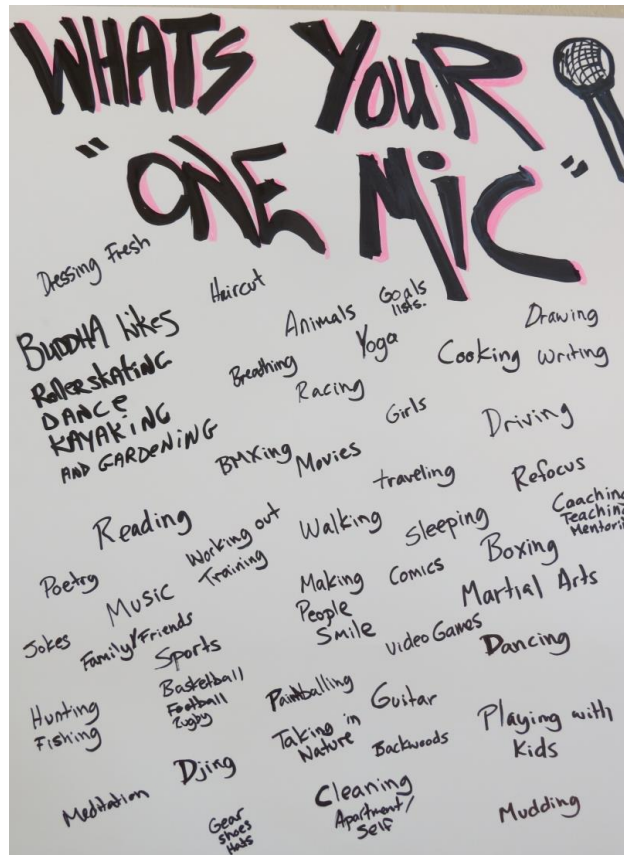 WHATS YOUR
"ONE MIC"
Dressing Fresh
Haircut
Animals
Goals
lists.
Drawing
BUDDHA Likes
RollerskatiNG
DANCe
KAYAKiNG
AND GARDeNiNG
Breathing
Yoga
Cooking
Writing
Racing
Girls
Driving
BMXing
Movies
traveling
Refocus
Reading
Working out
Training
Walking
Sleeping
Coaching
Teaching
Boxing
Poetry
Music
Making
People
Smile
Comics
Martial Arts
Jokes
Family/Friends
Sports
Video Games
Dancing
Basketball
Football
Rugby
Paintballing
Guitar
Hunting
Fishing
Taking in
Nature
Backwoods
Playing with
Kids
Djing
Meditation
Cleaning
Apartment/
Self
Mudding
Gear
shoes
Hats